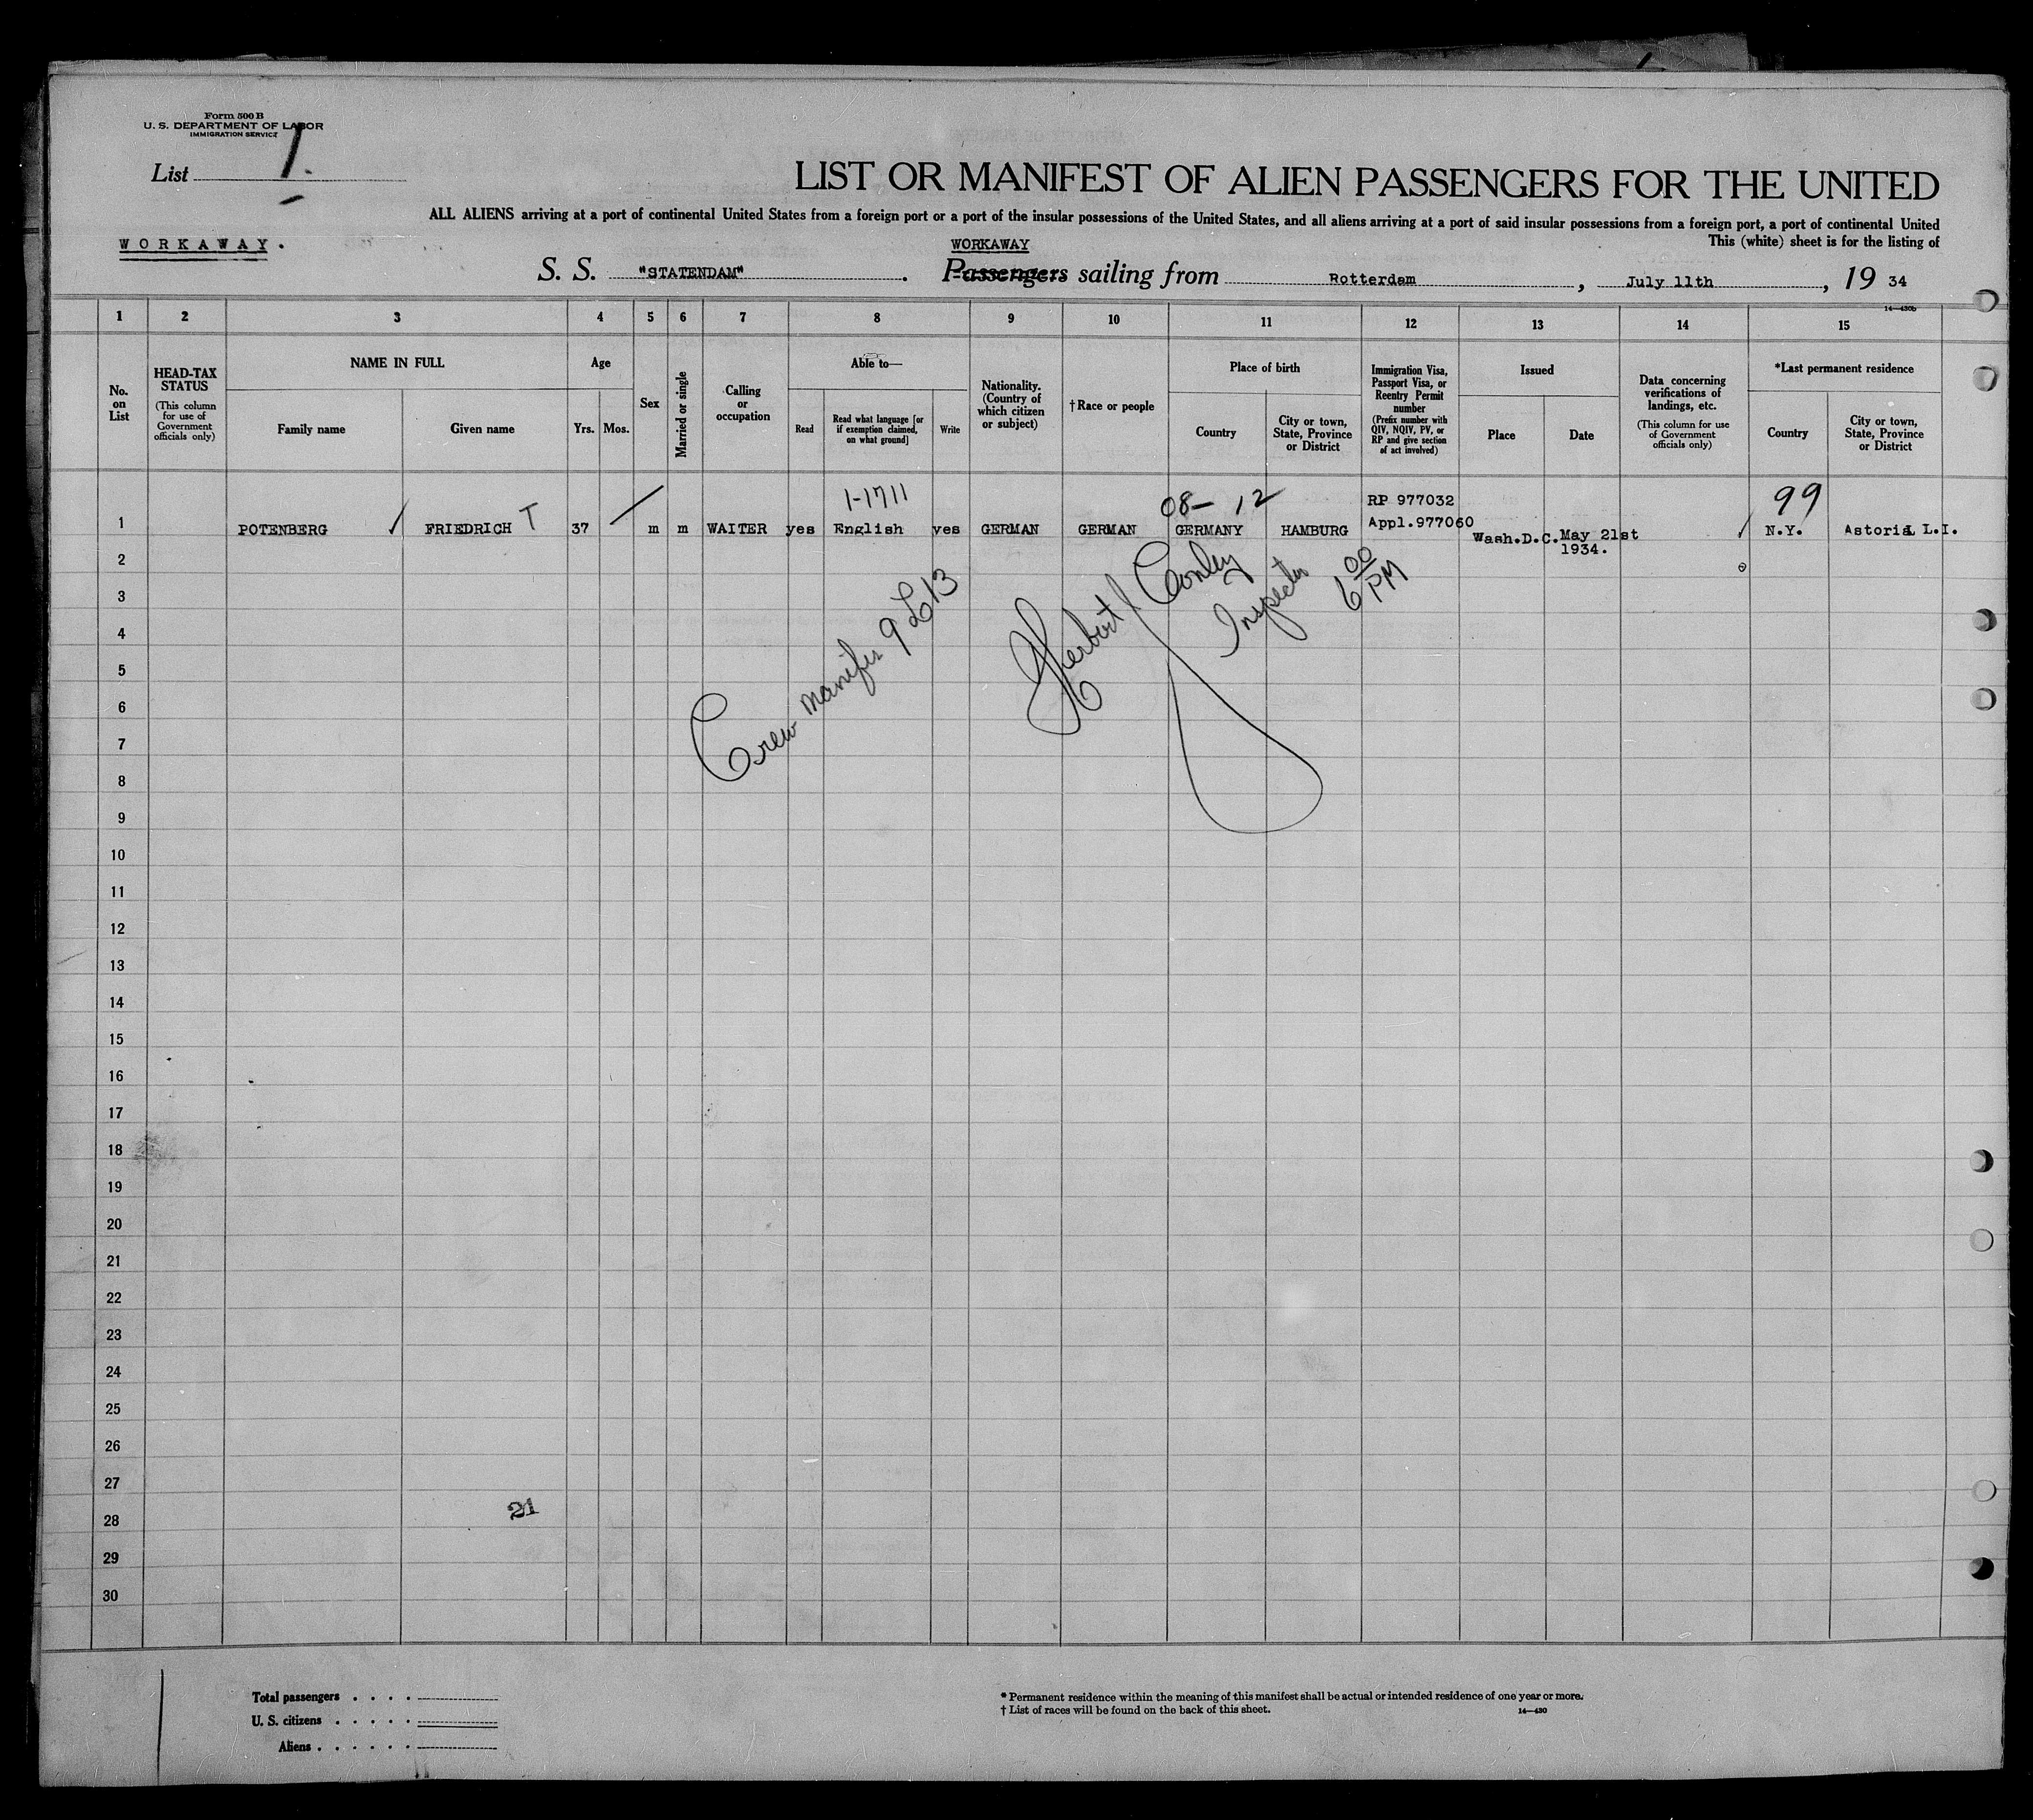 Form 500 B
U. S. DEPARTMENT OF LABOR
IMMIGRATION SERVICE
List 1.
LIST OR MANIFEST OF ALIEN PASSENGERS FOR THE UNITED
ALL ALIENS arriving at a port of continental United States from a foreign port or a port of the insular possessions of the United States, and all aliens arriving at a port of said insular possessions from a foreign port, a port of continental United
This (white) sheet is for the listing of
WORKAWAY.
WORKAWAY
S. S. "STATENDAM". Passengers sailing from Rotterdam, July 11th, 19 34
14—430b
1 2 3 4 5 6 7 8 9 10 11 12 13 14 15
No. on List
HEAD-TAX STATUS
(This column for use of Government officials only)
NAME IN FULL
Family name Given name
Age
Yrs. Mos.
Sex
Married or single
Calling or occupation
Able to—
Read
Read what language [or if exemption claimed, on what ground]
Write
Nationality. (Country of which citizen or subject)
†Race or people
Place of birth
Country
City or town, State, Province or District
Immigration Visa, Passport Visa, or Reentry Permit number
(Prefix number with QIV, NQIV, PV, or RP and give section of act involved)
Issued
Place Date
Data concerning verifications of landings, etc.
(This column for use of Government officials only)
*Last permanent residence
Country
City or town, State, Province or District
1-1711 08- 12 RP 977032 99
1 POTENBERG FRIEDRICH T 37 m m WAITER yes English yes GERMAN GERMAN GERMANY HAMBURG Appl.977060 Wash.D.C. May 21st 1934. N.Y. Astoria L.I.
2
3
4
5
6
7
8
9
10
11
12
13
14
15
16
17
18
19
20
21
22
23
24
25
26
27
28
29
30
Crew manifes 9 L13
Herbert J Conley
Inspector
6 00 PM
21
Total passengers
U. S. citizens
Aliens
* Permanent residence within the meaning of this manifest shall be actual or intended residence of one year or more.
† List of races will be found on the back of this sheet.
14—430